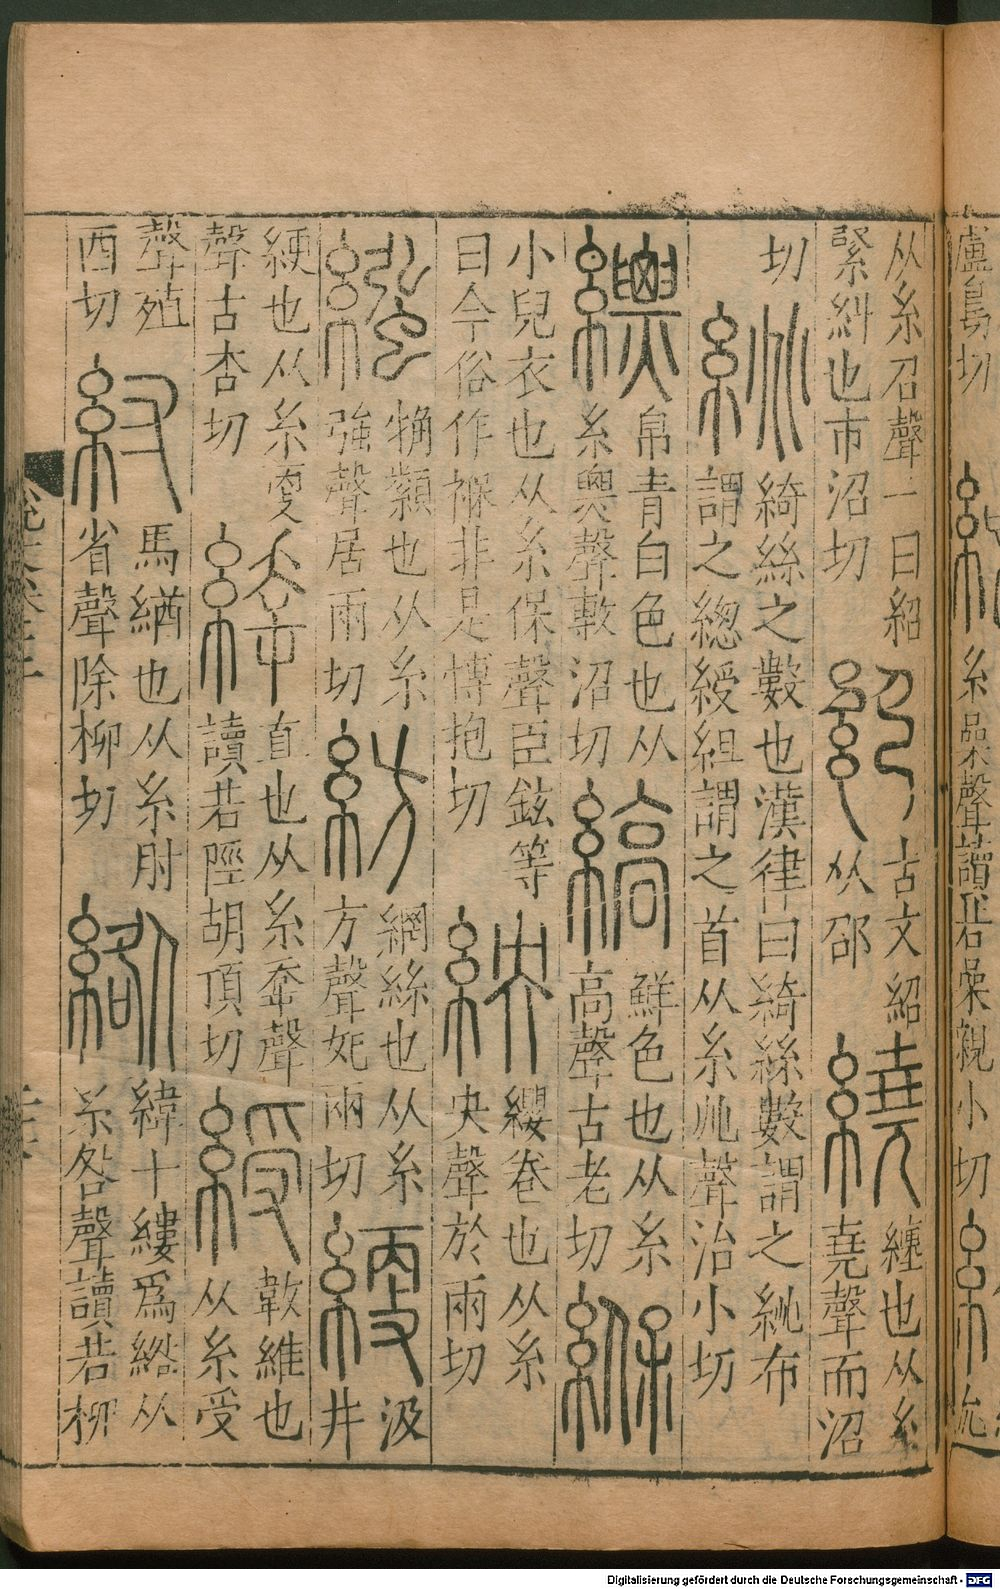 盧鳥切
糸喿聲讀若喿親小切
从糸召聲一曰紹
緊糾也市沼切
紹
古文紹
从邵
繞
纏也从糸
堯聲而沼
切
絩
綺絲之數也漢律曰綺絲數謂之絩布
謂之總綬組謂之首从糸兆聲治小切
縹
帛青白色也从
糸㶾聲敷沼切
縞
鮮色也从糸
高聲古老切
緥
小兒衣也从糸保聲臣鉉等
曰今俗作褓非是博抱切
紻
纓卷也从糸
央聲於兩切
繦
觕纇也从糸
強聲居兩切
紡
網絲也从糸
方聲妃兩切
綆
汲
井
綆也从糸㪅
聲古杏切
緈
直也从糸㚔聲
讀若陘胡頂切
綬
韍維也
从糸受
聲殖
酉切
紂
馬緧也从糸肘
省聲除柳切
綹
緯十縷爲綹从
糸咎聲讀若柳
Digitalisierung gefördert durch die Deutsche Forschungsgemeinschaft - DFG